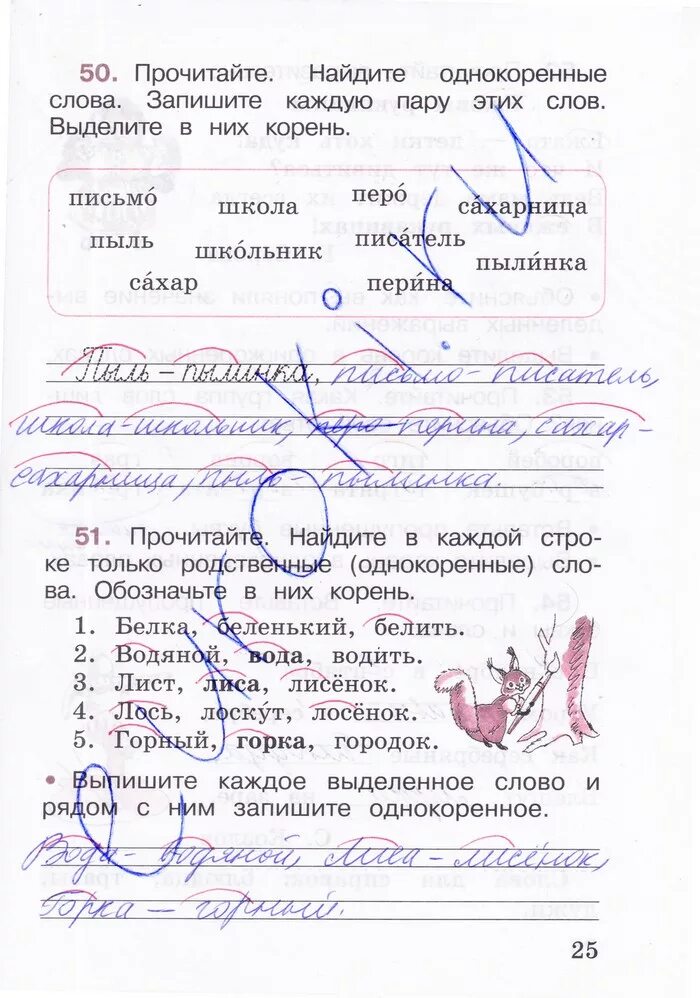 50. Прочитайте. Найдите однокоренные
слова. Запишите каждую пару этих слов.
Выделите в них корень.
письмо́ школа перо́ са́харница
пыль шко́льник писа́тель пыли́нка
са́хар пери́на
Пыль – пылинка, письмо – писатель,
школа – школьник, перо – перина, сахар –
сахарница, пыль – пылинка.
51. Прочитайте. Найдите в каждой стро-
ке только родственные (однокоренные) сло-
ва. Обозначьте в них корень.
1. Белка, беленький, белить.
2. Водяной, вода, води́ть.
3. Лист, лиса, лисёнок.
4. Лось, лоску́т, лосёнок.
5. Горный, горка, городок.
• Выпишите каждое выделенное слово и
рядом с ним запишите однокоренное.
Вода – водяной, лиса – лисёнок,
Горка – горный.
25